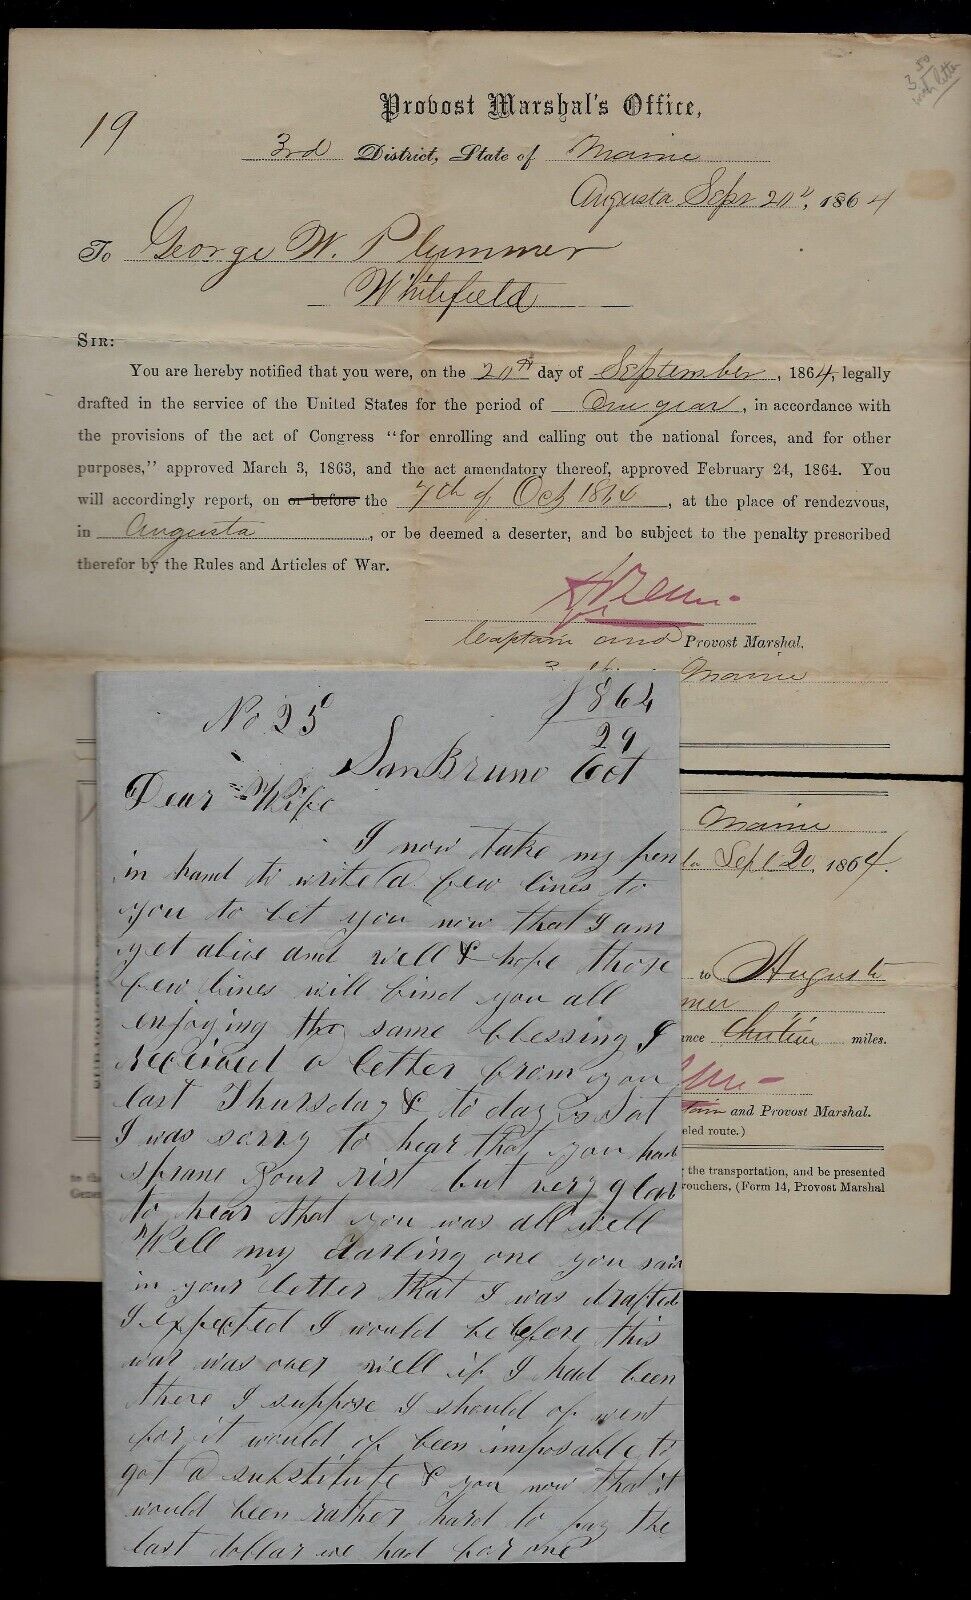 3 50
with letter
19
Provost Marshal's Office,
3rd District, State of Maine
Augusta Sept 20", 1864
To George W. Plummer
Whitefield
SIR:
You are hereby notified that you were, on the 20th day of September, 1864, legally
drafted in the service of the United States for the period of One year, in accordance with
the provisions of the act of Congress "for enrolling and calling out the national forces, and for other
purposes," approved March 3, 1863, and the act amendatory thereof, approved February 24, 1864. You
will accordingly report, on or before the 7th of Oct 1864, at the place of rendezvous,
in Augusta, or be deemed a deserter, and be subject to the penalty prescribed
therefor by the Rules and Articles of War.
Captain and Provost Marshal,
Maine
Maine
Sept 20, 1864.
to Augusta
mer
nce miles.
tain and Provost Marshal.
eled route.)
the transportation, and be presented
vouchers. (Form 14, Provost Marshal
to the
Gener
No 25
1864
29
San Bruno Oct
Dear Wife
I now take my pen
in hand to write a few lines to
you to let you now that I am
yet alive and well & hope those
few lines will find you all
enjoying the same blessing I
received a letter from you
last Thursday & to day is Sat
I was sorry to hear that you had
sprane your rist but very glad
to hear that you was all well
Well my darling one you said
in your letter that I was drafted
I expected I would be before this
war was over well if I had been
there I suppose I should of went
for it would of been imposable to
got a substitute & you now that it
would been rather hard to pay the
last dollar we had for one